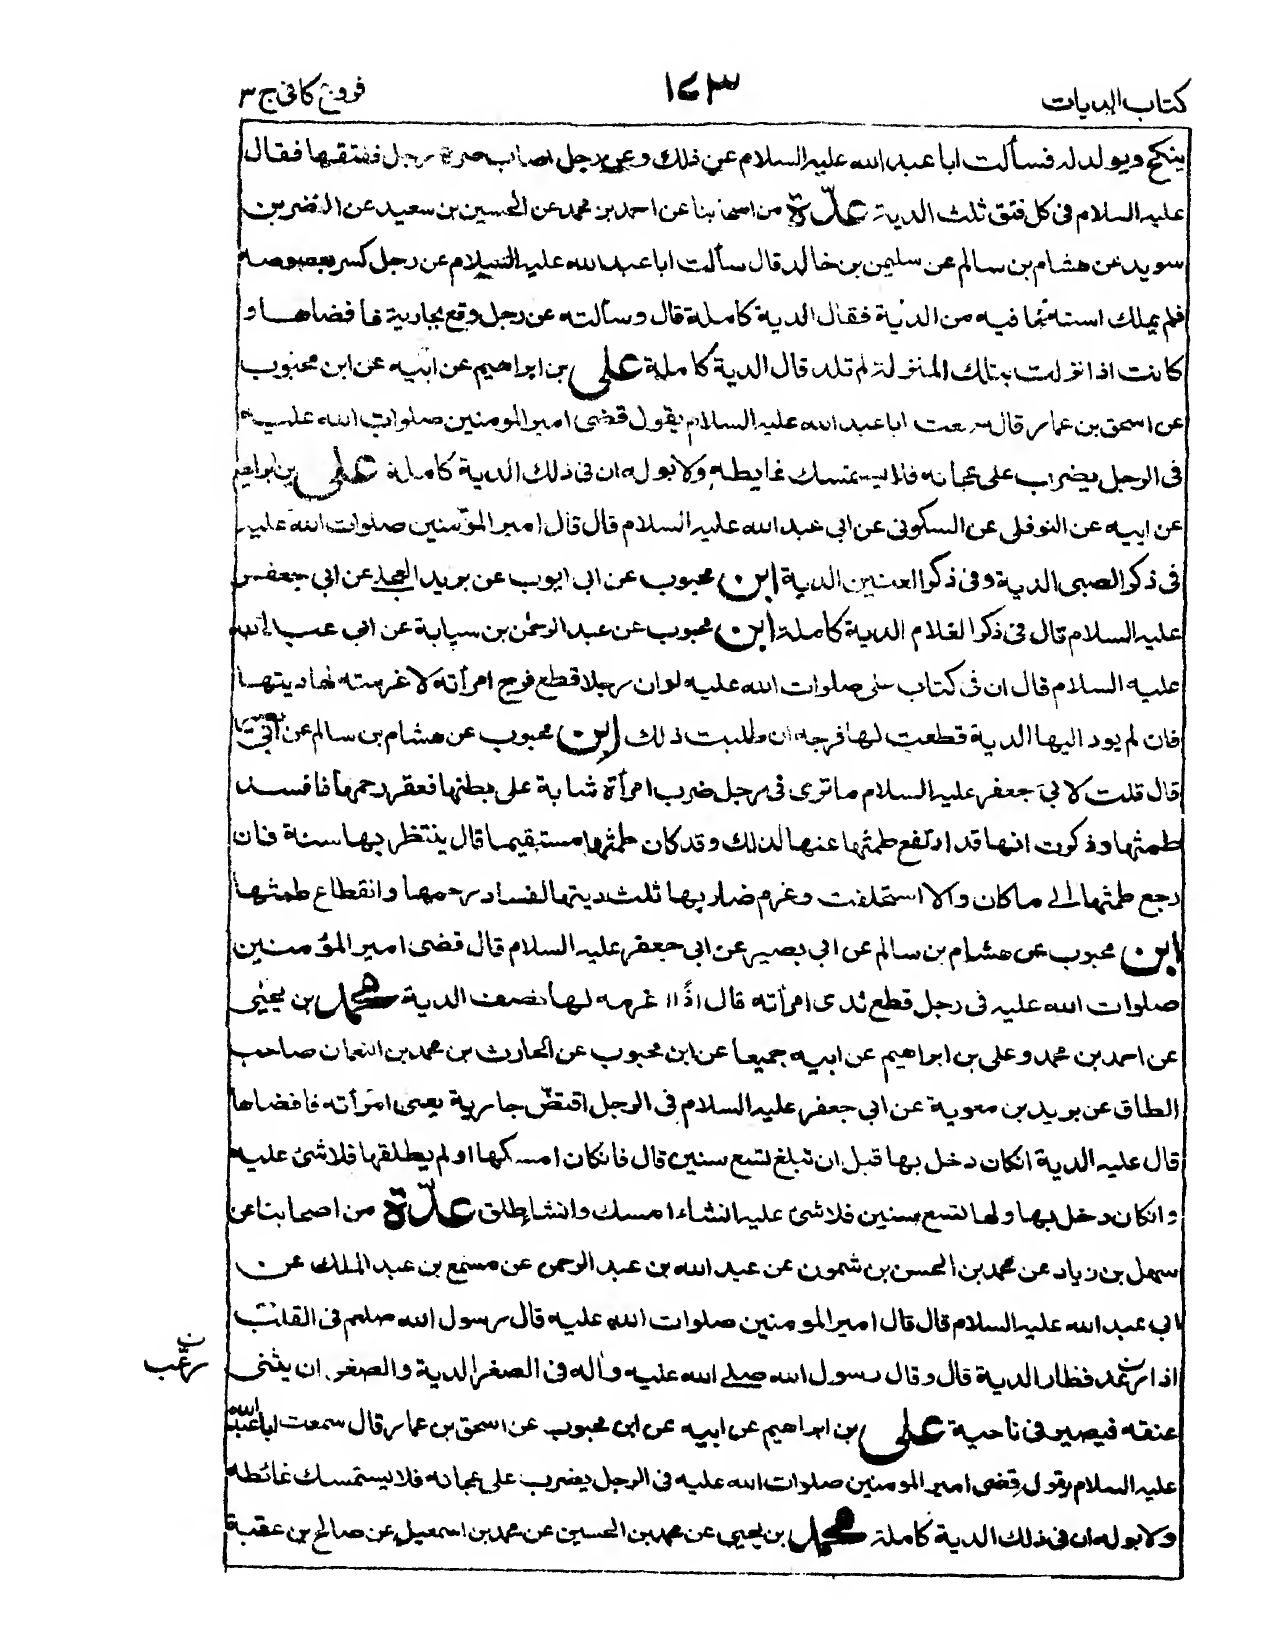 كتاب الديات
١٤٣
فروع كافى ج ٣
ينكح ويولد له فسألت ابا عبد الله عليه السلام عن ذلك وعن رجل اصاب صرة رجل ففتقها فقال
عليه السلام فى كل فتق ثلث الدية عدّة من اصحابنا عن احمد بن محمد عن الحسين بن سعيد عن النضر بن
سويد عن هشام بن سالم عن سليمن بن خالد قال سألت ابا عبد الله عليه السلام عن رجل كسر بعصوصه
فلم يملك استه فما فيه من الدية فقال الدية كاملة قال وسألته عن رجل وقع بجارية فافضاها و
كانت اذا نزلت بتلك المنزلة لم تلد قال الدية كاملة على بن ابراهيم عن ابيه عن ابن محبوب
عن اسحق بن عمار قال سمعت ابا عبد الله عليه السلام يقول قضى امير المومنين صلوات الله عليه
فى الرجل يضرب على عجانه فلا يستمسك غايطه ولا بوله ان فى ذلك الدية كاملة على بن ابراهيم
عن ابيه عن النوفلى عن السكونى عن ابى عبد الله عليه السلام قال قال امير المؤمنين صلوات الله عليه
فى ذكر الصبى الدية وفى ذكر العنين الدية ابن محبوب عن ابى ايوب عن بريد العجلى عن ابى جعفر
عليه السلام قال فى ذكر الغلام الدية كاملة ابن محبوب عن عبد الرحمن بن سيابة عن ابى عبد الله
عليه السلام قال ان فى كتاب على صلوات الله عليه لو ان رجلا قطع فرج امرأته لاغرمته لها ديتها
فان لم يود اليها الدية قطعت لها فرجه ان طلبت ذلك ابن محبوب عن هشام بن سالم عن ابى بصير
قال قلت لابى جعفر عليه السلام ما ترى فى رجل ضرب امرأة شابة على بطنها فعقر رحمها فافسد
طمثها وذكرت انها قد ارتفع طمثها عنها لذلك وقد كان طمثها مستقيما قال ينتظر بها سنة فان
رجع طمثها الى ما كان والا استحلفت وغرم ضاربها ثلث ديتها لفساد رحمها وانقطاع طمثها
ابن محبوب عن هشام بن سالم عن ابى بصير عن ابى جعفر عليه السلام قال قضى امير المؤمنين
صلوات الله عليه فى رجل قطع ثدى امرأته قال اذًا اغرمه لها نصف الدية محمد بن يحيى
عن احمد بن محمد وعلى بن ابراهيم عن ابيه جميعا عن ابن محبوب عن الحارث بن محمد بن النعمان صاحب
الطاق عن بريد بن معوية عن ابى جعفر عليه السلام فى الرجل اقتضّ جارية يعنى امرأته فافضاها
قال عليه الدية انكان دخل بها قبل ان تبلغ تسع سنين قال فانكان امسكها ولم يطلقها فلا شئ عليه
وانكان دخل بها ولها تسع سنين فلا شئ عليه انشاء امسك وانشا طلق عدّة من اصحابنا عن
سهل بن زياد عن محمد بن الحسن بن شمون عن عبد الله بن عبد الرحمن عن مسمع بن عبد الملك عن
ابى عبد الله عليه السلام قال قال امير المومنين صلوات الله عليه قال رسول الله صلعم فى القلب
اذا رعد فطار الدية قال وقال رسول الله صلى الله عليه وآله فى الصعر الدية والصعر ان يثنى
رعّب
عنقه فيصير فى ناحية على بن ابراهيم عن ابيه عن ابن محبوب عن اسحق بن عمار قال سمعت ابا عبد الله
عليه السلام يقول قضى امير المومنين صلوات الله عليه فى الرجل يضرب على عجانه فلا يستمسك غائطه
ولا بوله ان فى ذلك الدية كاملة محمد بن يحيى عن محمد بن الحسين عن محمد بن اسمعيل عن صالح بن عقبة